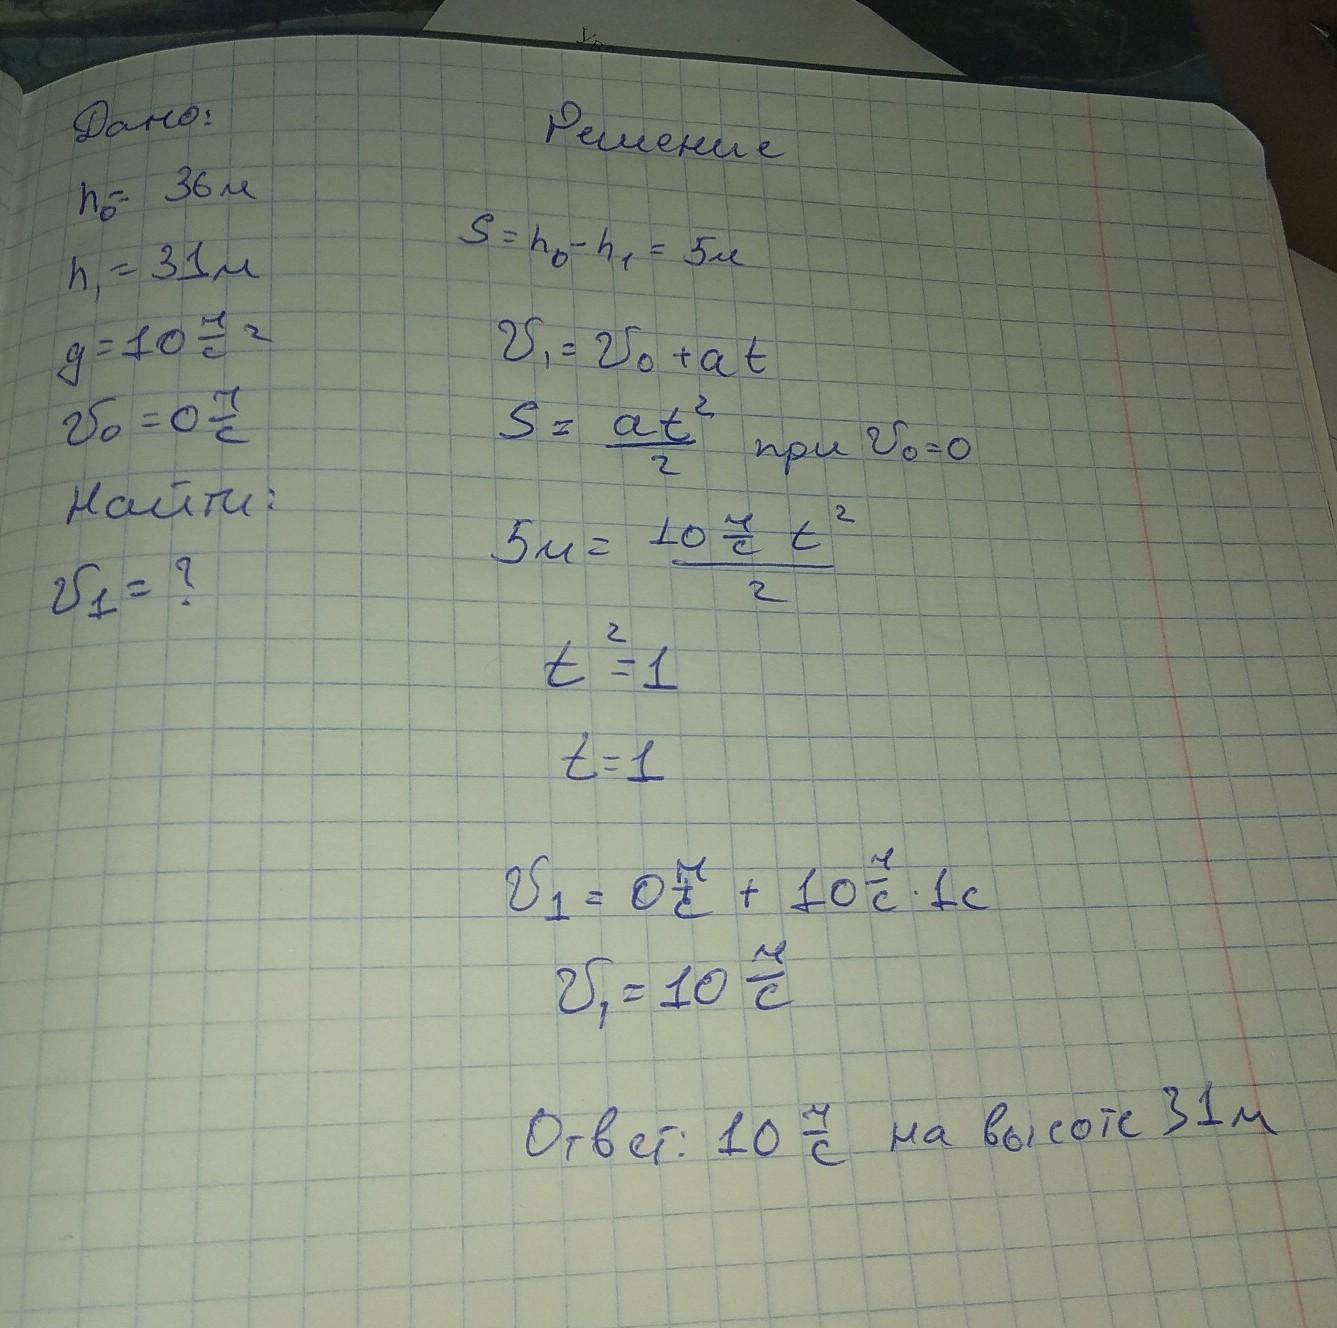 Дано:
h₀= 36м
h₁ = 31м
g=10 м/с²
v₀ = 0 м/с
Найти:
v₁ = ?
Решение
S = h₀ - h₁ = 5м
v₁ = v₀ + at
S = at²/2 при v₀=0
5м = 10 м/с t²/2
t² = 1
t = 1
v₁ = 0 м/с + 10 м/с · 1с
v₁ = 10 м/с
Ответ: 10 м/с на высоте 31м